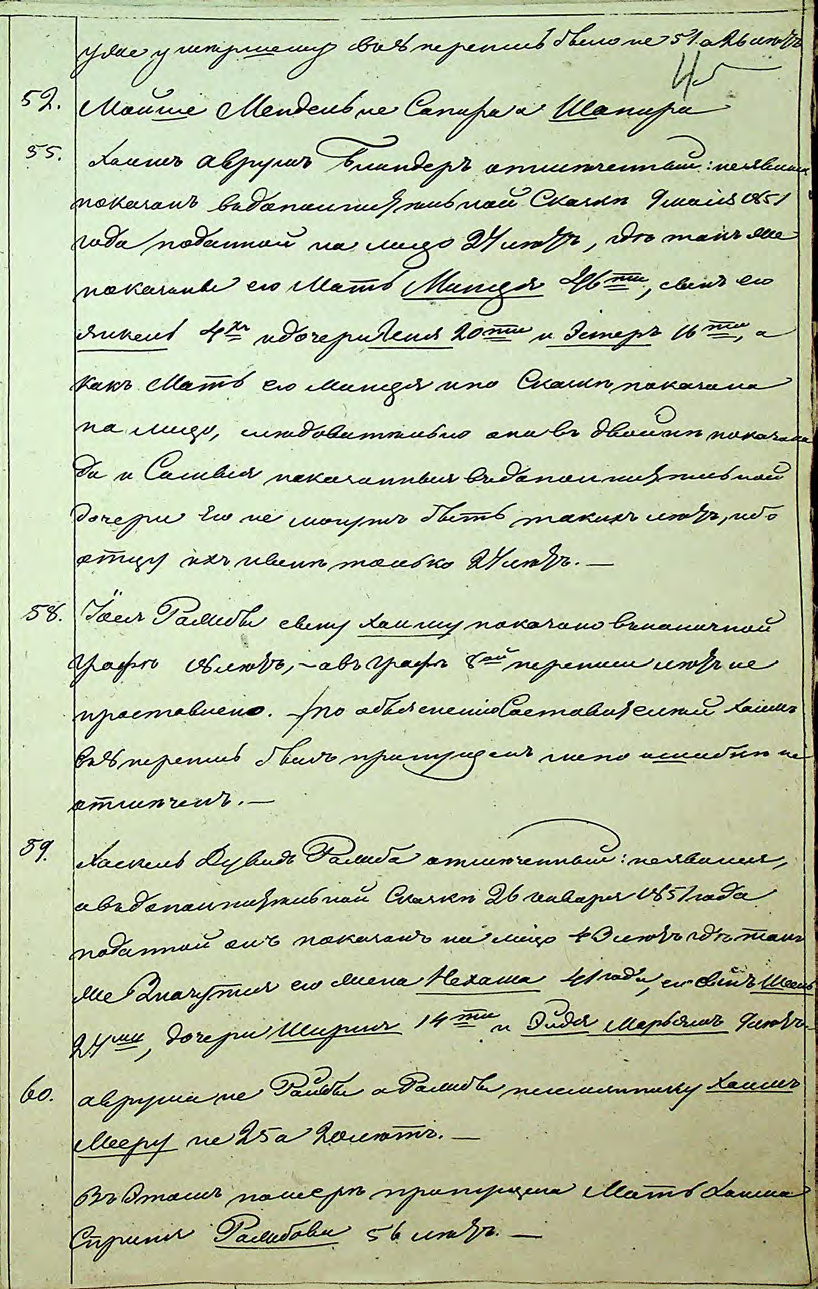 уже умершему въ 8 перепись было не 51 а 26 лѣтъ
45
52. Мойше Мендель не Сапира а Шапира
55. Хаимъ Аврумъ Блиндеръ отмѣченный: неявился
показанъ въ дополнительной Сказкѣ 9 мая 1851
года поданной на лицо 24 лѣтъ, гдѣ также
показаны его Мать Миндля 46ти, сынъ его
Янкель 4хъ и дочери 20ти и Эстеръ 16ти, а
какъ Мать его Миндля и по Сказкѣ показана
на лицо, слѣдовательно она въ двойнѣ показана
да и Самыя показанныя въ дополнительной
дочери его не могутъ быть такихъ лѣтъ, ибо
отцу ихъ имѣетъ только 24 лѣтъ. —
58. Іося сыну Хаиму показано въ наличной
графѣ 18 лѣтъ, – а въ графѣ 8ой переписи лѣтъ не
проставлено. – по объясненію Составителей Хаимъ
въ 8 перепись былъ пропущенъ но по ошибкѣ не
отмѣченъ. —
59. Хаскель Дувидъ отмѣченный: неявился,
а въ дополнительной Сказкѣ 26 января 1851 года
поданной онъ показанъ на лицо 43 лѣтъ гдѣ так
же Значутся его жена Нехама 41 года, его сынъ
24ми, дочери Ширинъ 14ти и Эйдя Марьямъ 9 лѣтъ
60. Аврума не а племяннику Хаимъ
Мееру не 25 а 20 лѣтъ. —
Въ Этомъ номерѣ пропущена Мать Хаима
Сприня 56 лѣтъ. —